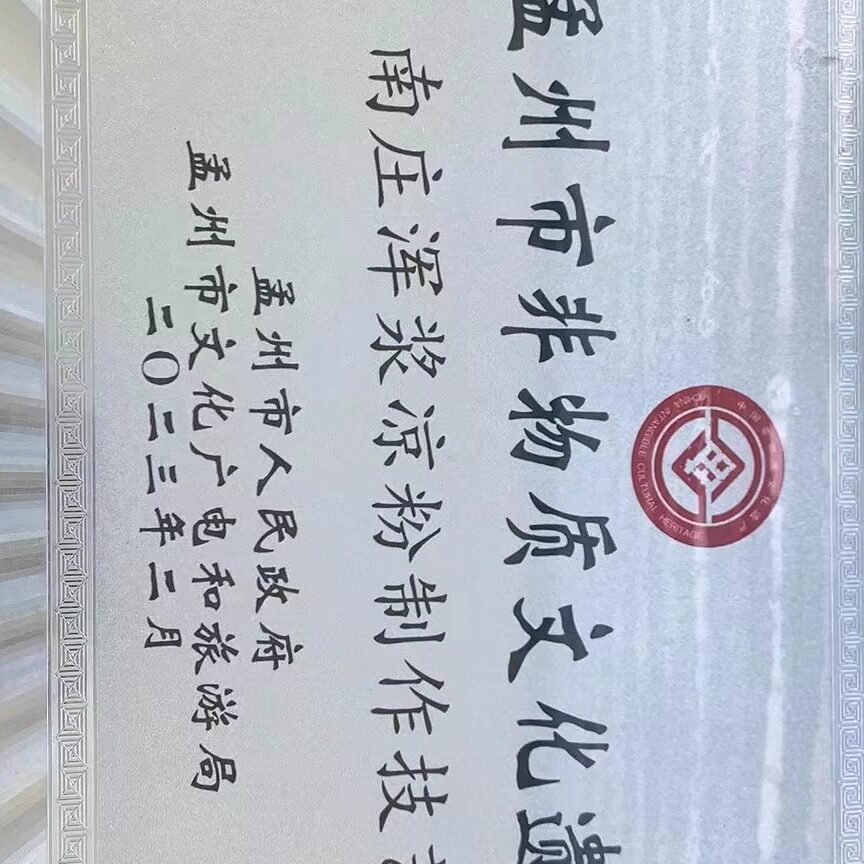 CHINA INTANGIBLE CULTURAL HERITAGE
孟州市非物质文化遗
南庄浑浆凉粉制作技
孟州市人民政府
孟州市文化广电和旅游局
二〇二三年二月